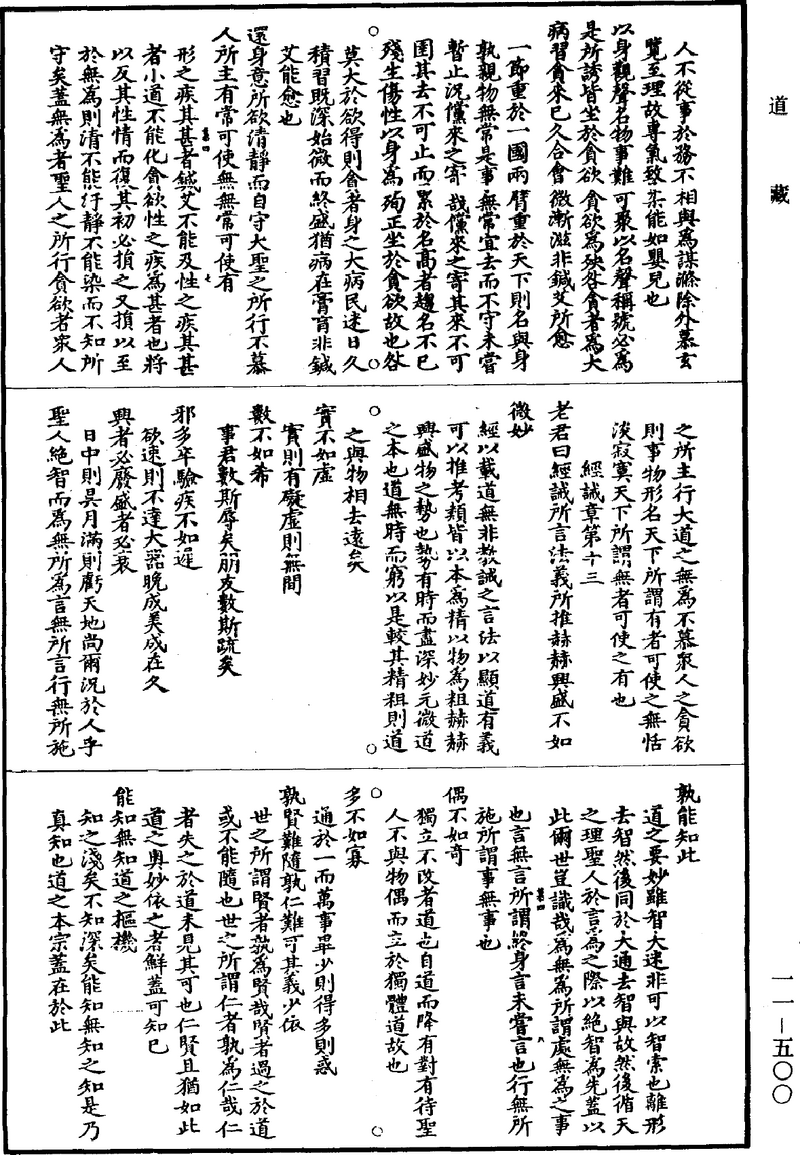 道藏
人不從事於務不相與為謀滌除外慕玄
覽至理故專氣致柔能如嬰兒也
以身觀聲名物事難可聚以名聲稱號必為
是所誘皆坐於貪欲貪欲為殃咎貪者為大
病習貪來已久合會微漸滋非鍼艾所愈
一節重於一國兩臂重於天下則名與身
孰親物無常是事無常宜去而不守未嘗
暫止況儻來之寄哉儻來之寄其來不可
圉其去不可止而累於名高者趨名不已
殘生傷性以身為殉正坐於貪欲故也咎
莫大於欲得則會著身之大病民迷日久
積習既深始微而終盛猶病在膏肓非鍼
艾能愈也
還身意所欲清靜而自守大聖之所行不慕
人所主有常可使無無常可使有
形之疾其甚者鍼艾不能及性之疾其甚
者小道不能化貪欲性之疾為甚者也將
以反其性情而復其初必損之又損以至
於無為則清不能汙靜不能染而不知所
守矣蓋無為者聖人之所行貪欲者眾人
之所主行大道之無為不慕眾人之貪欲
則事物形名天下所謂有者可使之無恬
淡寂寞天下所謂無者可使之有也
經誡章第十三
老君曰經誡所言法義所推赫赫興盛不如
微妙
經以載道無非教誡之言法以顯道有義
可以推考類皆以本為精以物為粗赫赫
興盛物之勢也勢有時而盡深妙元微道
之本也道無時而窮以是較其精粗則道
之與物相去遠矣
實不如虛
實則有礙虛則無間
數不如希
事君數斯辱矣朋友數斯疏矣
邪多卒驗疾不如遲
欲速則不達大器晚成美成在久
興者必廢盛者必衰
日中則昃月滿則虧天地尚爾況於人乎
聖人絕智而為無所為言無所言行無所施
孰能知此
道之要妙雖智大迷非可以智索也離形
去智然後同於大通去智與故然後循天
之理聖人於言為之際以絕智為先蓋以
此爾世豈識哉為無為所謂處無為之事
也言無言所謂終身言未嘗言也行無所
施所謂事無事也
偶不如奇
獨立不改者道也自道而降有對有待聖
人不與物偶而立於獨體道故也
多不如寡
通於一而萬事畢少則得多則惑
孰賢難隨孰仁難可其義少依
世之所謂賢者孰為賢哉賢者過之於道
或不能隨也世之所謂仁者孰為仁哉仁
者失之於道未見其可也仁賢且猶如此
道之奧妙依之者鮮蓋可知已
能知無知道之樞機
知之淺矣不知深矣能知無知之知是乃
真知也道之本宗蓋在於此
一一－五〇〇